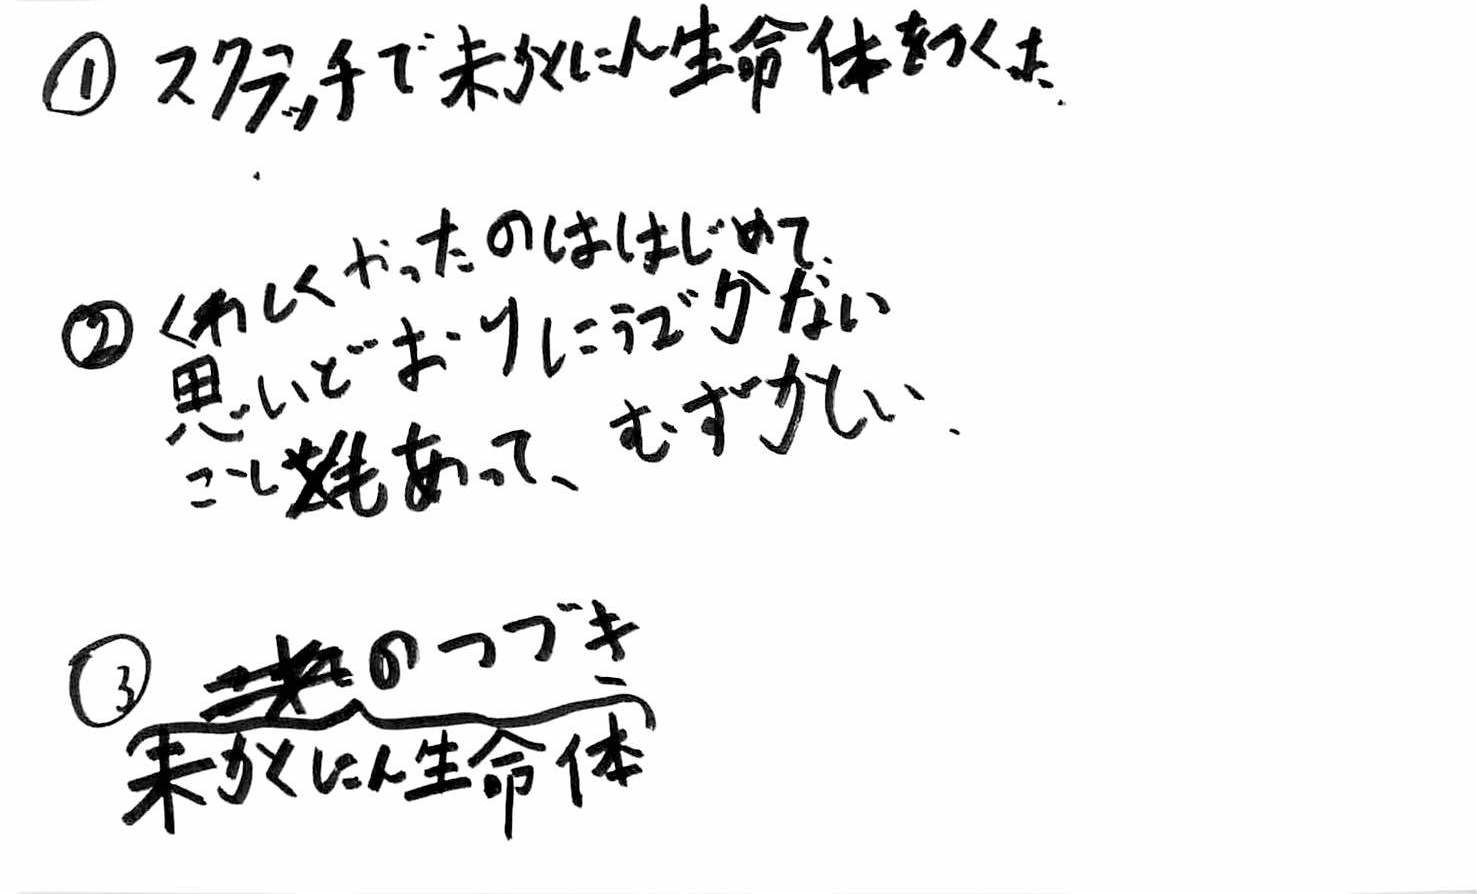 ① スクラッチで未かくにん生命体をつくた.
② くわしくやったのははじめて.
思いどおりにうごかない
こともあって、むずかしい.
③ のつづき
未かくにん生命体